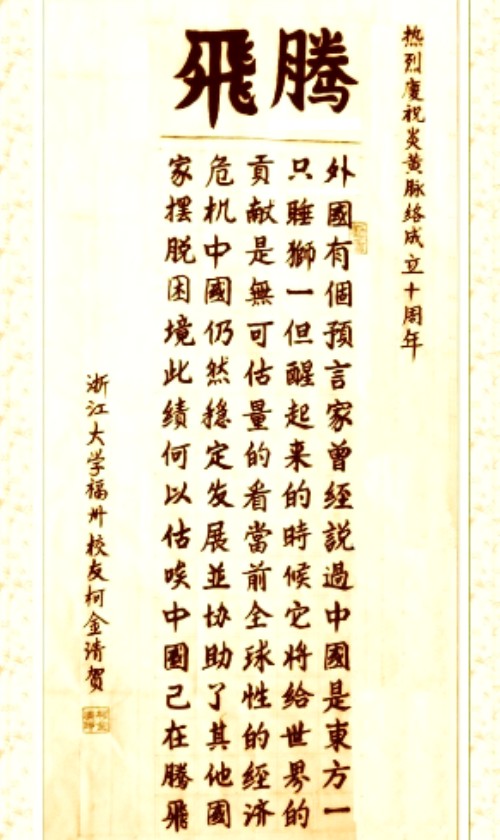 热烈慶祝炎黄脉络成立十周年
腾飛
外國有個預言家曾經説過中國是東方一
只睡獅一但醒起来的時候它将给世界的
貢献是無可估量的看當前全球性的经济
危机中國仍然穩定发展並协助了其他國
家摆脱困境此績何以估唉中國己在腾飛
浙江大学福州校友柯金清贺